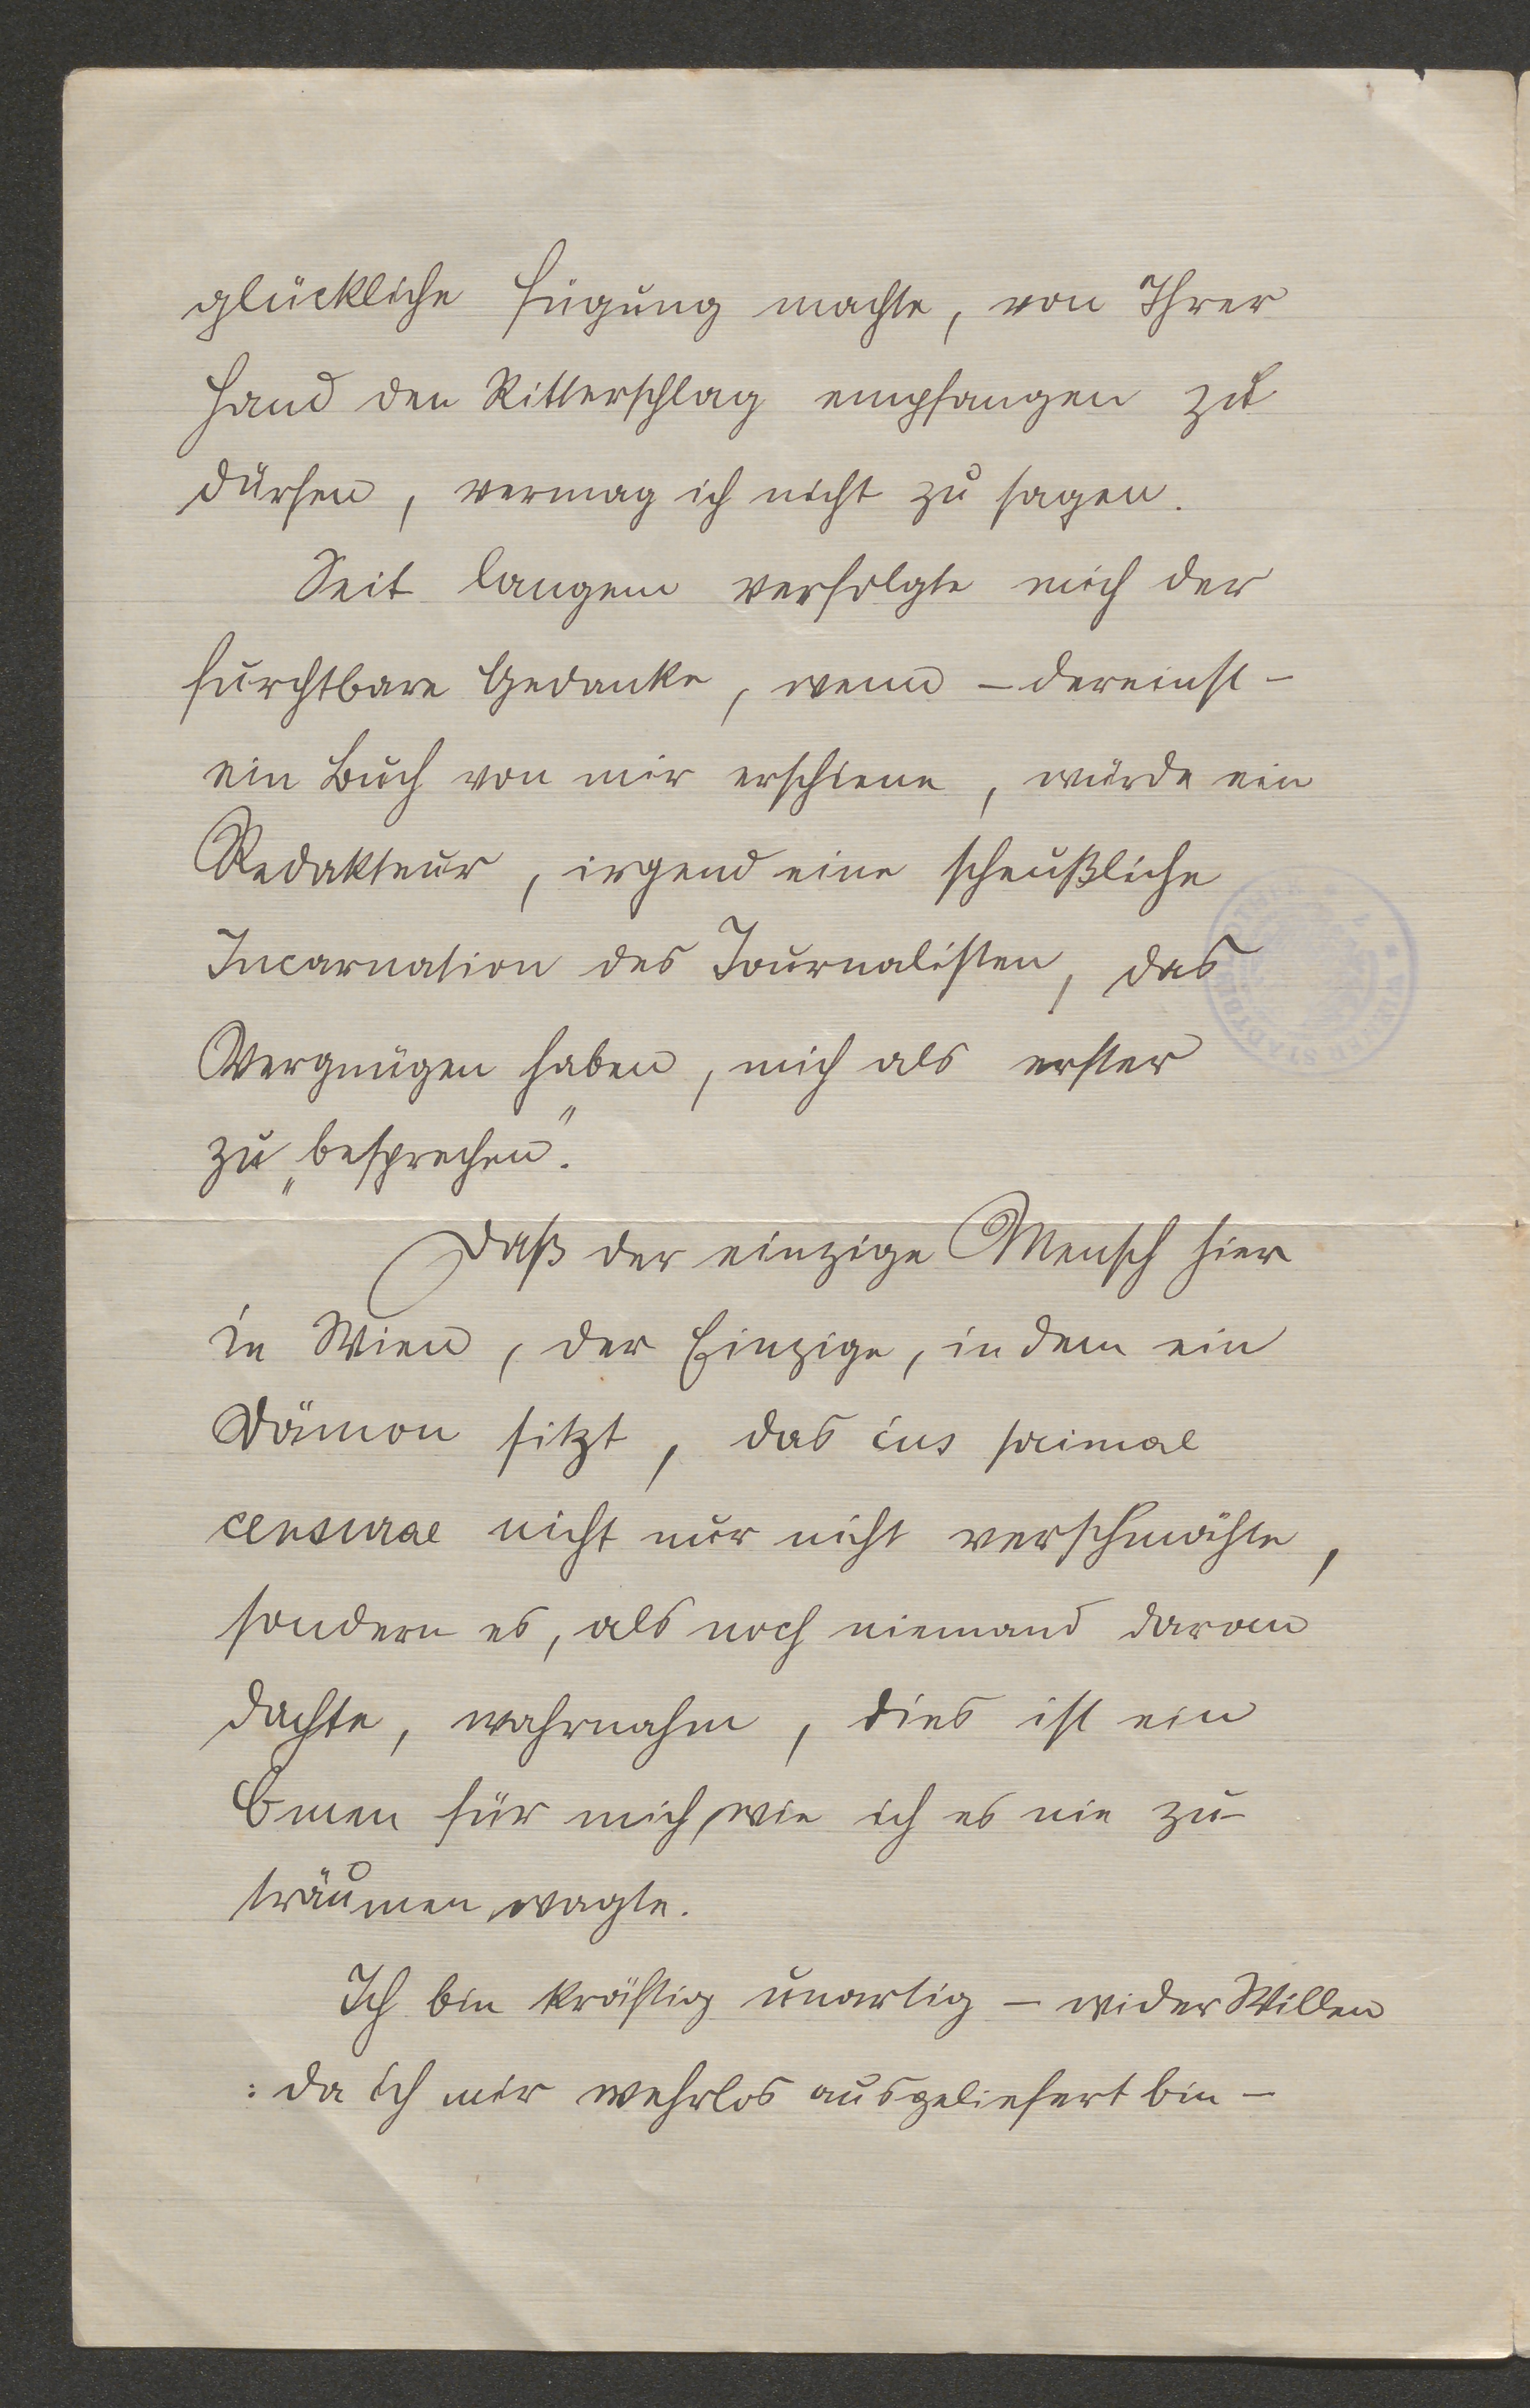 glückliche Fügung machte, von Ihrer
Hand den Ritterschlag empfangen zu
dürfen, vermag ich nicht zu sagen.
Seit langem verfolgte mich der
furchtbare Gedanke, wenn – dereinst –
ein Buch von mir erschiene, würde ein
Redakteur, irgend eine scheußliche
Incarnation des Journalisten, das
Vergnügen haben, mich als erster
zu „besprechen“.
Daß der einzige Mensch hier
in Wien, der Einzige, in dem ein
Dämon sitzt, das ius primae
censurae nicht nur nicht verschmähte,
sondern es, als noch niemand daran
dachte, wahrnahm, dies ist ein
Omen für mich, wie ich es nie zu
träumen wagte.
Ich bin kräftig unartig – wider Willen
: da ich mir wehrlos ausgeliefert bin –